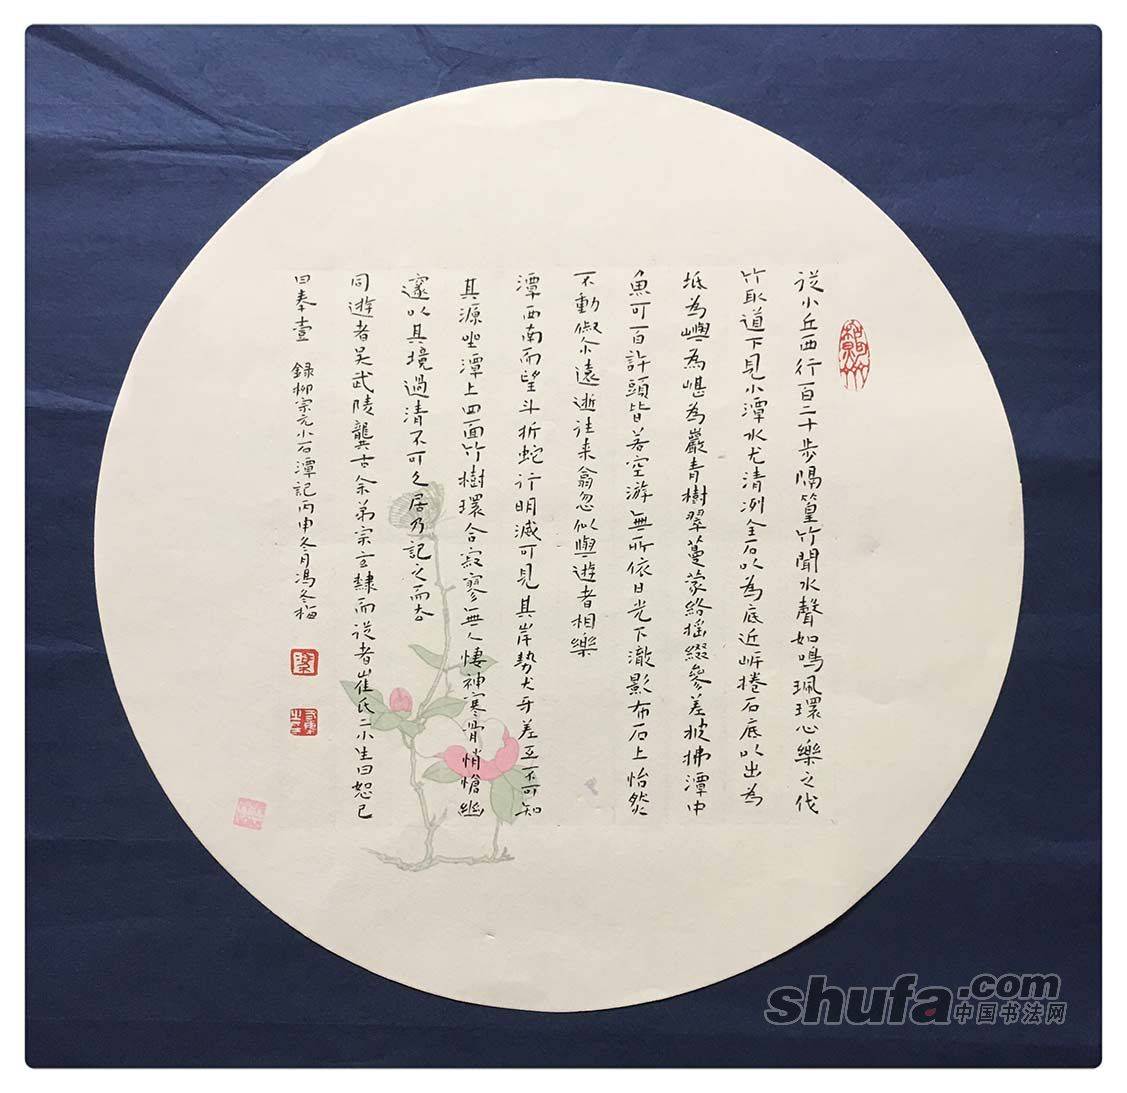 從小丘西行百二十步隔篁竹聞水聲如鳴珮環心樂之伐
竹取道下見小潭水尤清洌全石以為底近岸捲石底以出為
坻為嶼為嵁為巖青樹翠蔓蒙絡搖綴參差披拂潭中
魚可百許頭皆若空游無所依日光下澈影布石上怡然
不動俶尒遠逝往来翕忽似與遊者相樂
潭西南而望斗折蛇行明滅可見其岸勢犬牙差互不可知
其源坐潭上四面竹樹環合寂寥無人悽神寒骨悄愴幽
邃以其境過清不可久居乃記之而去
同遊者吴武陵龔古余弟宗玄隸而從者崔氏二小生曰恕己
曰奉壹 録柳宗元小石潭記丙申冬月馮冬梅
shufa.com
中国书法网